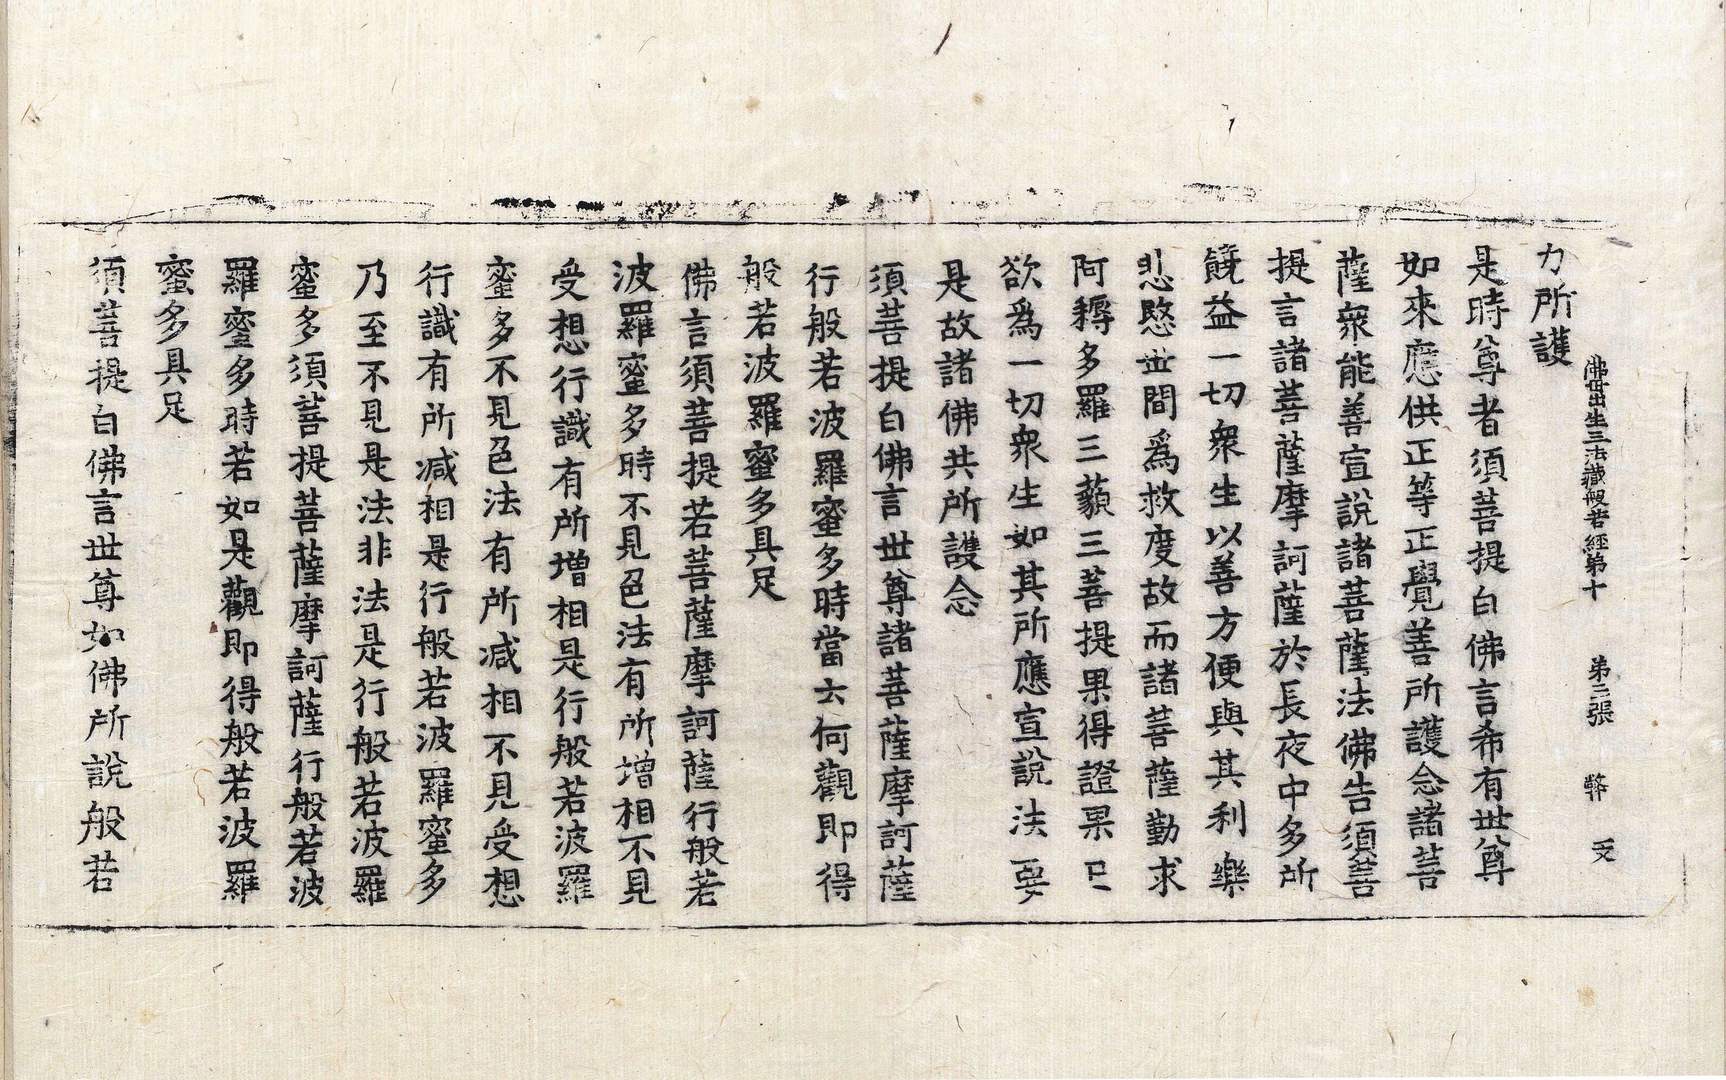 佛母出生三法藏般若經第十 第三張 弊 受
力所護
是時尊者須菩提白佛言希有世尊
如來應供正等正覺善所護念諸菩
薩衆能善宣說諸菩薩法佛告須菩
提言諸菩薩摩訶薩於長夜中多所
饒益一切衆生以善方便與其利樂
悲愍世間爲救度故而諸菩薩勤求
阿耨多羅三藐三菩提果得證果已
欲爲一切衆生如其所應宣說法要
是故諸佛共所護念
須菩提白佛言世尊諸菩薩摩訶薩
行般若波羅蜜多時當云何觀即得
般若波羅蜜多具足
佛言須菩提若菩薩摩訶薩行般若
波羅蜜多時不見色法有所增相不見
受想行識有所增相是行般若波羅
蜜多不見色法有所減相不見受想
行識有所減相是行般若波羅蜜多
乃至不見是法非法是行般若波羅
蜜多須菩提菩薩摩訶薩行般若波
羅蜜多時若如是觀即得般若波羅
蜜多具足
須菩提白佛言世尊如佛所說般若